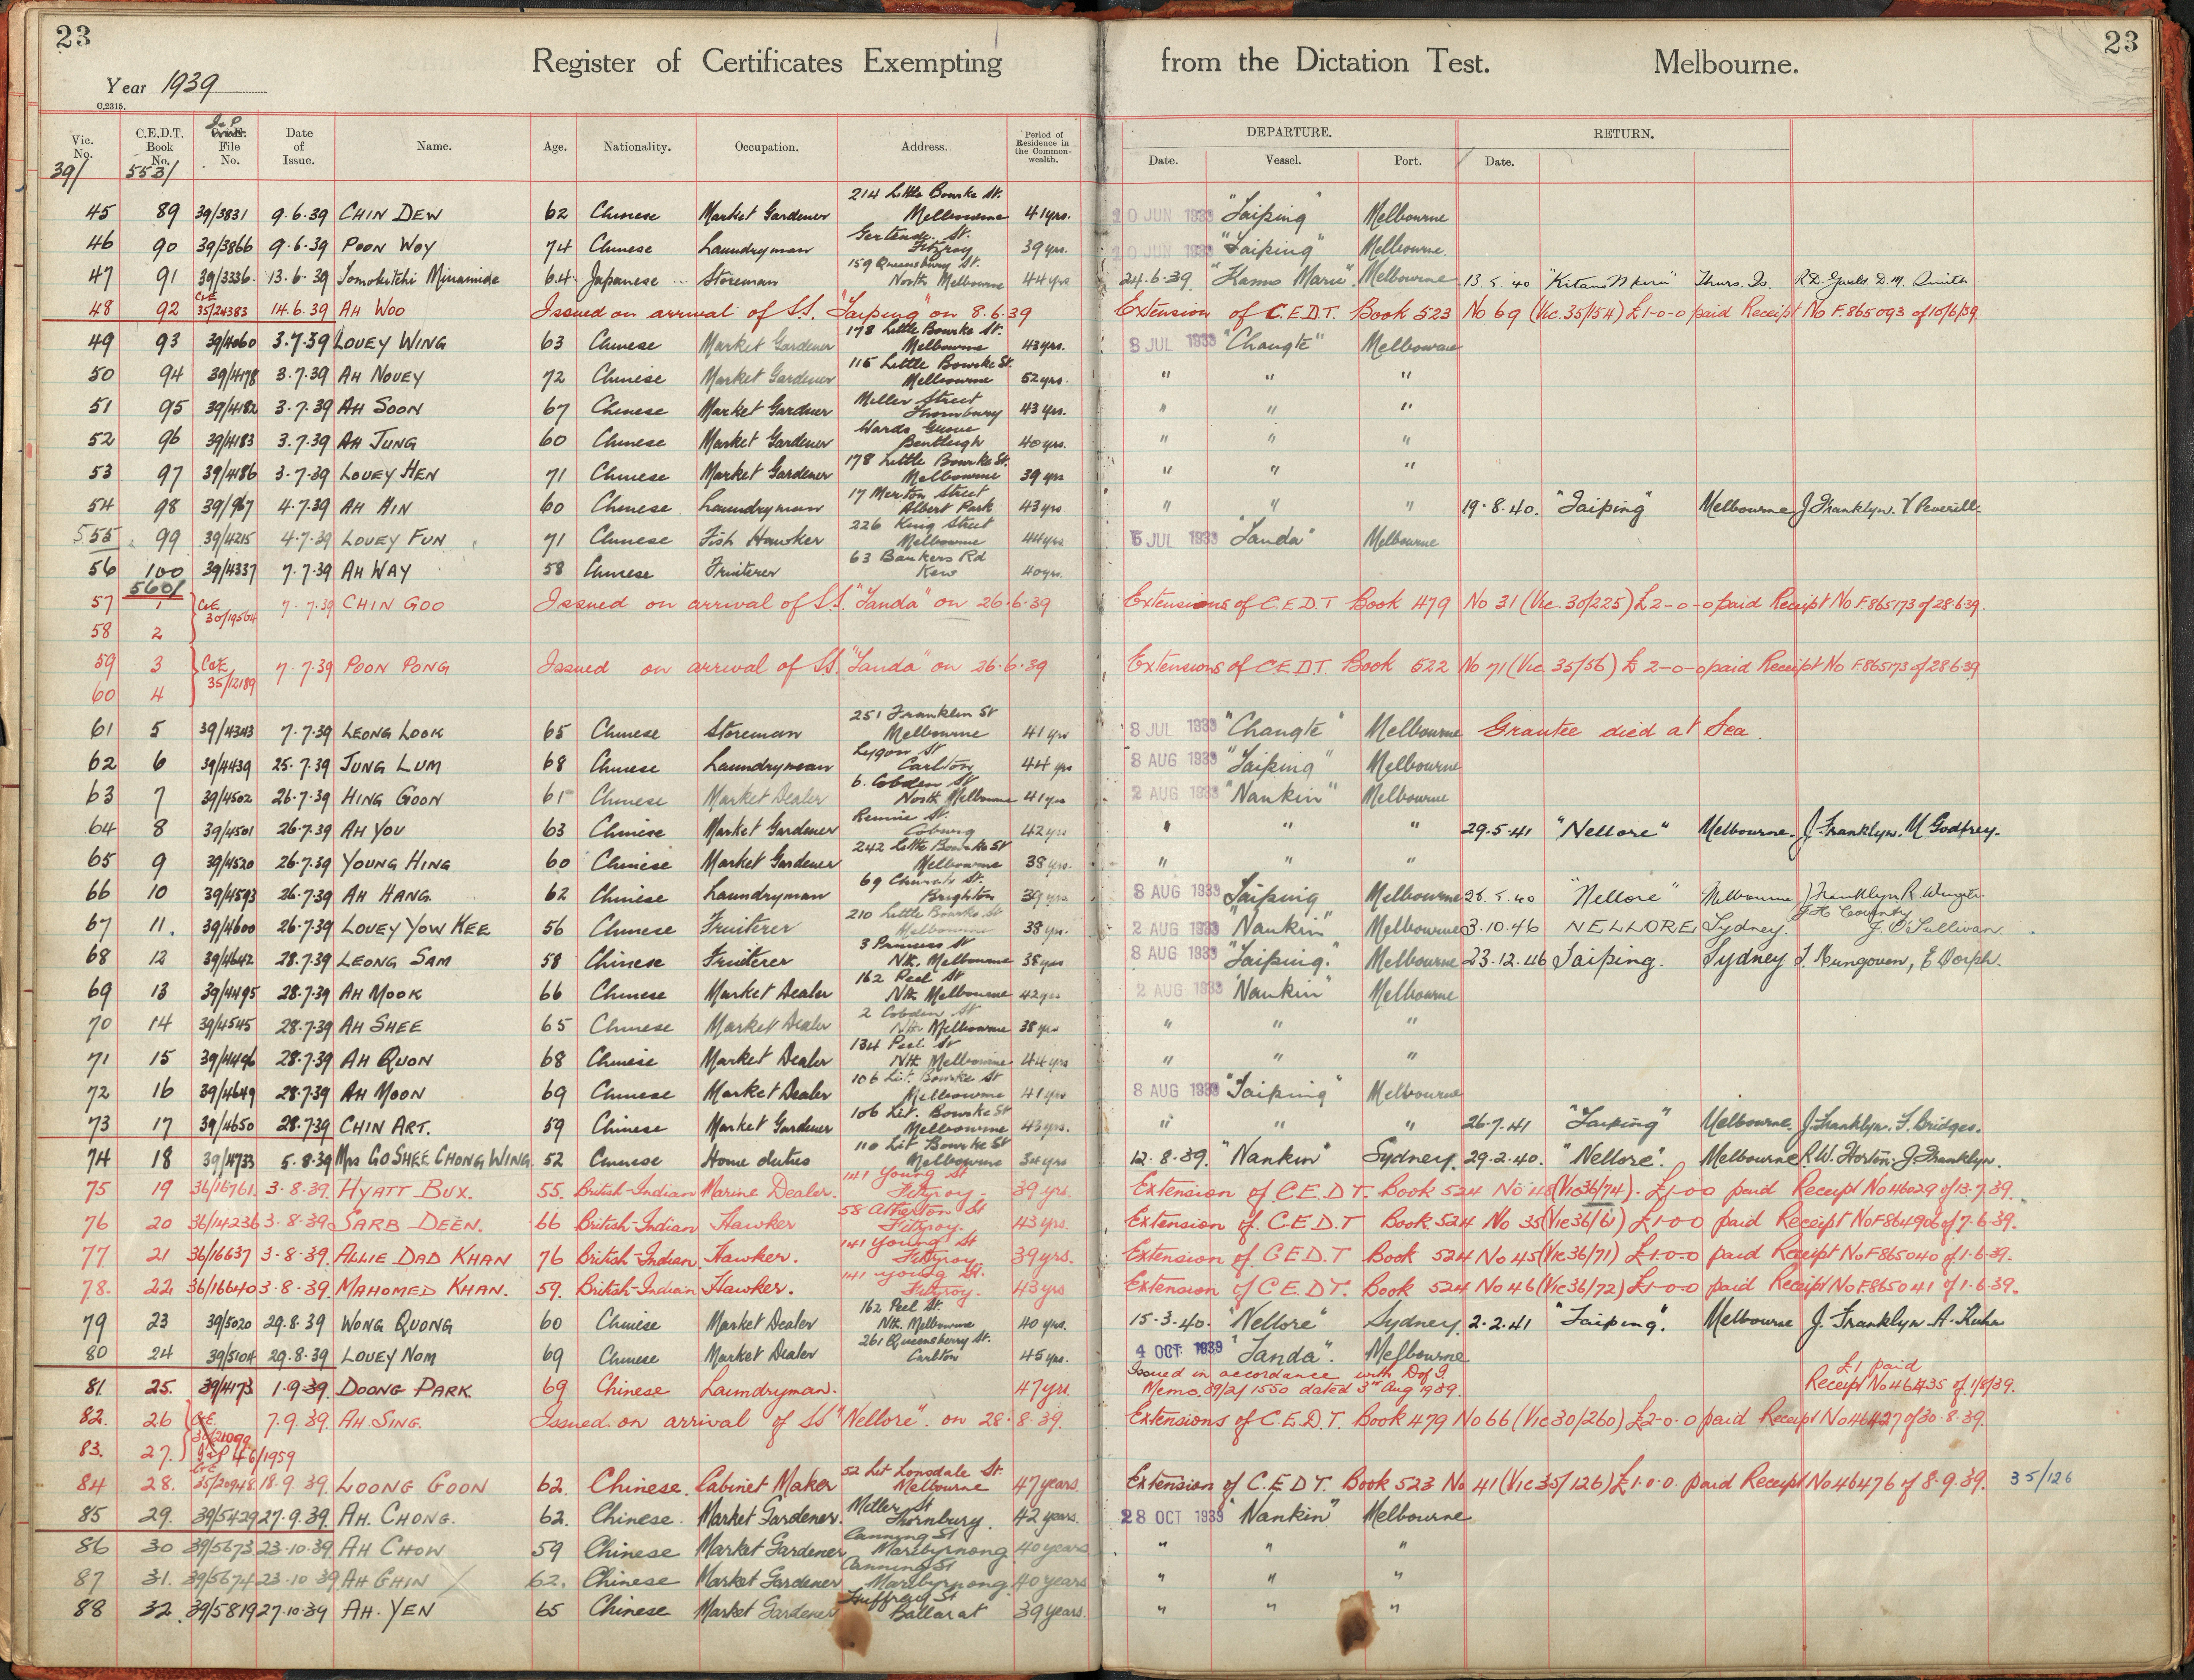 23
23
Register of Certificates Exempting from the Dictation Test. Melbourne.
Year 1939
C.2315.
Vic. No. C.E.D.T. Book No. I & P File No. Date of Issue. Name. Age. Nationality. Occupation. Address. Period of Residence in the Commonwealth. DEPARTURE. Date. Vessel. Port. RETURN. Date.
39/ 553/
45 89 39/3831 9.6.39 CHIN DEW 62 Chinese Market Gardener 214 Little Bourke St. Melbourne 41 yrs. 20 JUN 1939 "Taiping" Melbourne
46 90 39/3866 9.6.39 POON WOY 74 Chinese Laundryman St. Fitzroy 39 yrs. 20 JUN 1939 "Taiping" Melbourne.
47 91 39/3336. 13.6.39 Tomokitchi Minamide 64. Japanese ... Storeman 159 Queensbury St. North Melbourne 44 yrs 24.6.39. "Kamo Maru". Melbourne 13.5.40 "Kitano Maru" Thurs. Is. D.M. Smith
48 92 C&E 35/24383 14.6.39 AH WOO Issued on arrival of S.S. "Taiping" on 8.6.39 Extension of C.E.D.T. Book 523 No 69 (Vic. 35/154) £1-0-0 paid Receipt No F.865093 of 10/6/39.
49 93 39/4060 3.7.39 LOUEY WING 63 Chinese Market Gardener 178 Little Bourke St. Melbourne 43 yrs. 8 JUL 1939 "Changte" Melbourne
50 94 39/4178 3.7.39 AH NOUEY 72 Chinese Market Gardener 115 Little Bourke St. Melbourne 52 yrs. " " "
51 95 39/4182 3.7.39 AH SOON 67 Chinese Market Gardener Miller Street Thornbury 43 yrs. " " "
52 96 39/4183 3.7.39 AH JUNG 60 Chinese Market Gardener Wards Grove Bentleigh 40 yrs. " " "
53 97 39/4186 3.7.39 LOUEY HEN 71 Chinese Market Gardener 178 Little Bourke St. Melbourne 39 yrs " " "
54 98 39/967 4.7.39 AH HIN 60 Chinese Laundryman 17 Merton Street Albert Park 43 yrs " " " 19.8.40. "Taiping" Melbourne J Franklyn. V. Peverill.
55 99 39/4215 4.7.39 LOUEY FUN 71 Chinese Fish Hawker 226 King Street Melbourne 44 yrs 5 JUL 1939 "Tanda" Melbourne
56 100 39/4337 7.7.39 AH WAY 58 Chinese Fruiterer 63 Bankers Rd Kew 40 yrs.
560/
57 1 C&E 30/19504 7.7.39 CHIN GOO Issued on arrival of S.S. "Tanda" on 26.6.39 Extensions of C.E.D.T Book 479 No 31 (Vic. 30/225) £2-0-0 paid Receipt No F.865173 of 28.6.39.
58 2
59 3 C&E 35/12189 7.7.39 POON PONG Issued on arrival of S.S. "Tanda" on 26.6.39 Extensions of C.E.D.T. Book 522 No 71 (Vic. 35/56) £2-0-0 paid Receipt No F.865173 of 28.6.39
60 4
61 5 39/4343 7.7.39 LEONG LOOK 65 Chinese Storeman 251 Franklin St Melbourne 41 yrs 8 JUL 1939 "Changte" Melbourne Grantee died at Sea.
62 6 39/4439 25.7.39 JUNG LUM 68 Chinese Laundryman Lygon St Carlton 44 yrs 8 AUG 1939 "Taiping" Melbourne
63 7 39/4502 26.7.39 HING GOON 61 Chinese Market Dealer 6. Cobden St North Melbourne 41 yrs 2 AUG 1939 "Nankin" Melbourne
64 8 39/4501 26.7.39 AH YOU 63 Chinese Market Gardener Rennie St. Coburg 42 yrs " " " 29.5.41 "Nellore" Melbourne. J. Franklyn. M Godfrey.
65 9 39/4520 26.7.39 YOUNG HING 60 Chinese Market Gardener 242 Little Bourke St Melbourne 38 yrs. " " "
66 10 39/4593 26.7.39 AH HANG. 62 Chinese Laundryman 69 Church St. Brighton 39 yrs 8 AUG 1939 Taiping Melbourne 28.5.40 "Nellore" Melbourne J Franklyn R.
67 11. 39/4600 26.7.39 LOUEY YOW KEE 56 Chinese Fruiterer 210 Little Bourke St Melbourne 38 yrs. 2 AUG 1939 "Nankin" Melbourne 3.10.46 NELLORE Sydney. J. O'Sullivan
68 12 39/4642 28.7.39 LEONG SAM 58 Chinese Fruiterer 3 Princess St Nth. Melbourne 38 yrs 8 AUG 1939 "Taiping." Melbourne 23.12.46 Taiping. Sydney
69 13 39/4495 28.7.39 AH MOOK 66 Chinese Market Dealer 162 Peel St Nth Melbourne 42 yrs 2 AUG 1939 "Nankin" Melbourne
70 14 39/4545 28.7.39 AH SHEE 65 Chinese Market Dealer 2 Cobden St Nth Melbourne 38 yrs " " "
71 15 39/4496 28.7.39 AH QUON 68 Chinese Market Dealer 134 Peel. St Nth Melbourne 44 yrs " " "
72 16 39/4649 28.7.39 AH MOON 69 Chinese Market Dealer 106 Lit. Bourke St Melbourne 41 yrs 8 AUG 1939 "Taiping" Melbourne
73 17 39/4650 28.7.39 CHIN ART. 59 Chinese Market Gardener 106 Lit. Bourke St Melbourne 43 yrs. " " " 26.7.41 "Taiping" Melbourne J. Franklyn. F. Bridges.
74 18 39/4733 5.8.39 Mrs GO SHEE CHONG WING. 52 Chinese Home duties 110 Lit Bourke St Melbourne 34 yrs 12.8.39. "Nankin" Sydney. 29.2.40. "Nellore". Melbourne R.W. Horton. J. Franklyn.
75 19 36/16761. 3.8.39. HYATT BUX. 55. British-Indian Marine Dealer. 141 Young St Fitzroy. 39 yrs. Extension of C.E.D.T. Book 524 No 48 (Vic 36/74). £1-0-0 paid Receipt No 46029 of 13.7.39.
76 20 36/14236 3.8.39 SARB DEEN. 66 British-Indian Hawker 58 Atherton St Fitzroy. 43 yrs. Extension of C.E.D.T Book 524 No 35 (Vic 36/61) £1-0-0 paid Receipt No F864906 of 7.6.39.
77 21 36/16637 3.8.39. ALLIE DAD KHAN 76 British-Indian Hawker. 141 Young St Fitzroy 39 yrs. Extension of C.E.D.T Book 524 No 45 (Vic 36/71) £1-0-0 paid Receipt No F865040 of 1.6.39.
78. 22 36/16640 3.8.39. MAHOMED KHAN. 59. British-Indian Hawker. 141 Young St. Fitzroy. 43 yrs Extension of C.E.D.T. Book 524 No 46 (Vic 36/72) £1-0-0 paid Receipt No F.865041 of 1.6.39.
79 23 39/5020 29.8.39 WONG QUONG 60 Chinese Market Dealer 162 Peel St. Nth. Melbourne 40 yrs. 15.3.40. "Nellore" Sydney. 2.2.41 "Taiping". Melbourne J. Franklyn A.
80 24 39/5104 29.8.39 LOUEY NOM 69 Chinese Market Dealer 261 Queensberry St. Carlton 45 yrs. 4 OCT 1939 "Tanda". Melbourne
81 25. 39/4173 1.9.39. DOONG PARK 69 Chinese Laundryman. 47 yrs. Issued in accordance with D of I. Memo. 39/2/1550 dated 3rd Aug 1939. £1 paid Receipt No 46435 of 1/8/39.
82. 26 C&E. 30/21099. 7.9.39. AH SING. Issued on arrival of SS "Nellore". on 28.8.39. Extensions of C.E.D.T. Book 479 No 66 (Vic 30/260) £2-0-0 paid Receipt No 46427 of 30.8.39.
83. 27. I & P 46/1959
84 28. C&E 35/20948 18.9.39. LOONG GOON 62. Chinese. Cabinet Maker 52 Lit Lonsdale St. Melbourne 47 years. Extension of C.E.D.T. Book 523 No 41 (Vic 35/126) £1.0.0. paid Receipt No 46476 of 8.9.39. 35/126
85 29. 39/5429 27.9.39. AH. CHONG. 62. Chinese. Market Gardener. Miller St Thornbury. 42 years. 28 OCT 1939 "Nankin" Melbourne
86 30 39/5673 23.10.39 AH CHOW 59 Chinese Market Gardener Canning St Maribyrnong 40 years " " "
87 31. 39/5674 23.10.39 AH GHIN 62. Chinese Market Gardener Canning St Maribyrnong. 40 years " " "
88 32. 39/5819 27.10.39 AH. YEN 65 Chinese Market Gardener St Ballarat 39 years. " " "